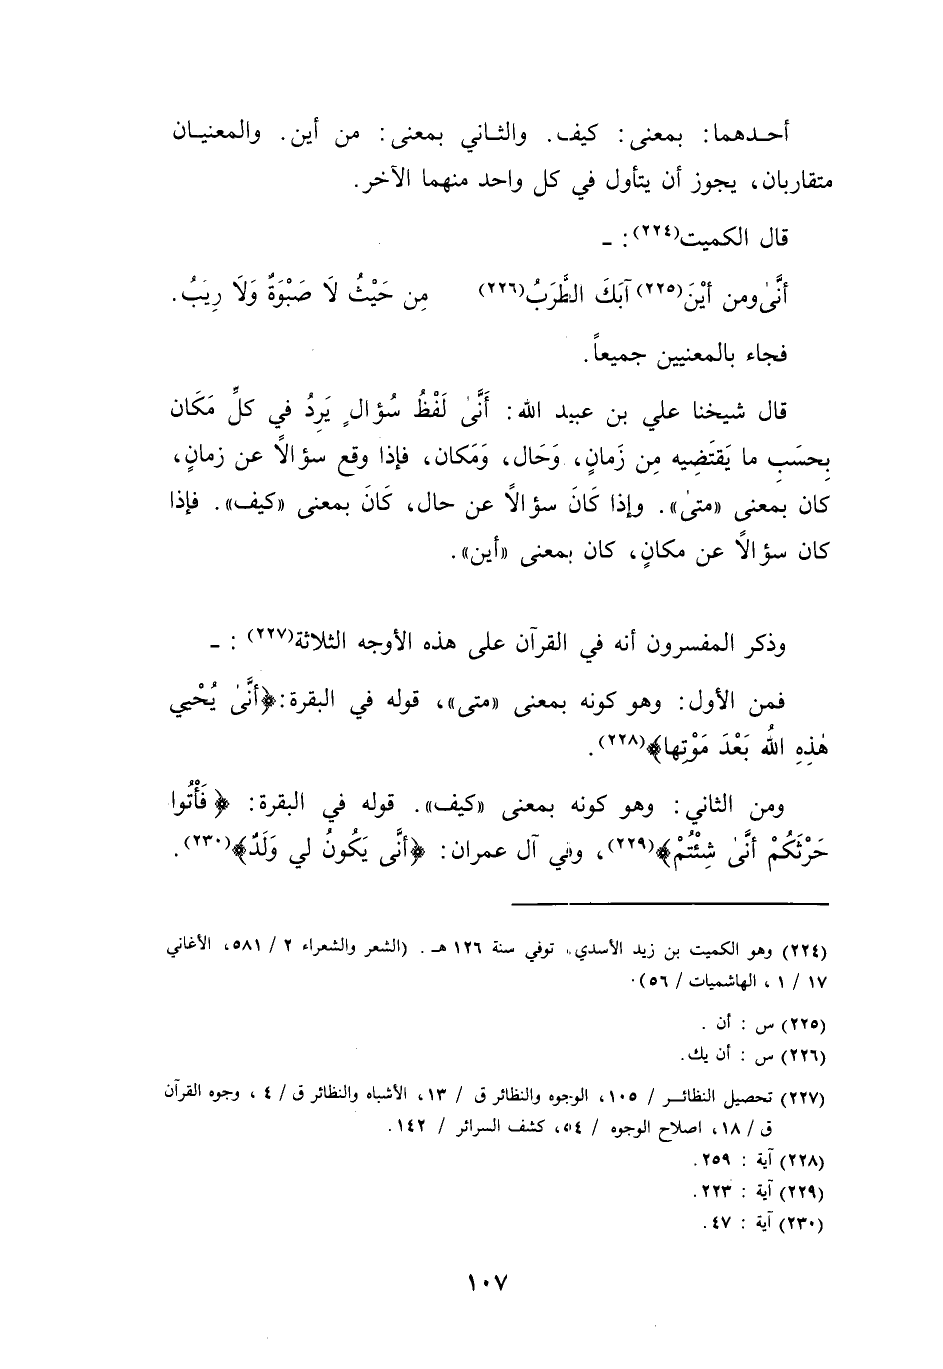 أحـدهما: بمعنى: كيف. والثـاني بمعنى: من أين. والمعنيـان
متقاربان، يجوز أن يتأول في كل واحد منهما الآخر.
قال الكميت(٢٢٤): ـ
أنَّىٰ ومن أيْنَ(٢٢٥) آبَكَ الطَّرَبُ(٢٢٦) مِن حَيْثُ لَا صَبْوَةٌ وَلَا رِيَبُ.
فجاء بالمعنيين جميعاً.
قال شيخنا علي بن عبيد الله: أَنَّىٰ لَفْظُ سُؤالٍ يَرِدُ في كلِّ مَكَان
بِحسَبِ ما يَقتَضِيه مِن زَمانٍ، وَحَال، وَمَكان، فإذا وقع سؤالًا عن زمانٍ،
كان بمعنى «متىٰ». وإذا كَانَ سؤالًا عن حال، كَانَ بمعنى «كيف». فإذا
كان سؤالًا عن مكانٍ، كان بمعنى «أين».
وذكر المفسرون أنه في القرآن على هذه الأوجه الثلاثة(٢٢٧): ـ
فمن الأول: وهو كونه بمعنى «متى»، قوله في البقرة: ﴿أنَّىٰ يُحْيي
هٰذِهِ اللهُ بَعْدَ مَوْتِها﴾(٢٢٨).
ومن الثاني: وهو كونه بمعنى «كيف». قوله في البقرة: ﴿فَأْتُوا
حَرْثَكُمْ أنَّىٰ شِئْتُمْ﴾(٢٢٩)، وفي آل عمران: ﴿أنَّى يَكُونُ لي وَلَدٌ﴾(٢٣٠).
(٢٢٤) وهو الكميت بن زيد الأسدي، توفي سنة ١٢٦ هـ. (الشعر والشعراء ٢ / ٥٨١، الأغاني
١٧ / ١، الهاشميات / ٥٦).
(٢٢٥) س : أن .
(٢٢٦) س : أن يك.
(٢٢٧) تحصيل النظائـر / ١٠٥، الوجوه والنظائر ق / ١٣، الأشباه والنظائر ق / ٤، وجوه القرآن
ق / ١٨، اصلاح الوجوه / ٥٤، كشف السرائر / ١٤٢.
(٢٢٨) آية : ٢٥٩.
(٢٢٩) آية : ٢٢٣.
(٢٣٠) آية : ٤٧.
١٠٧